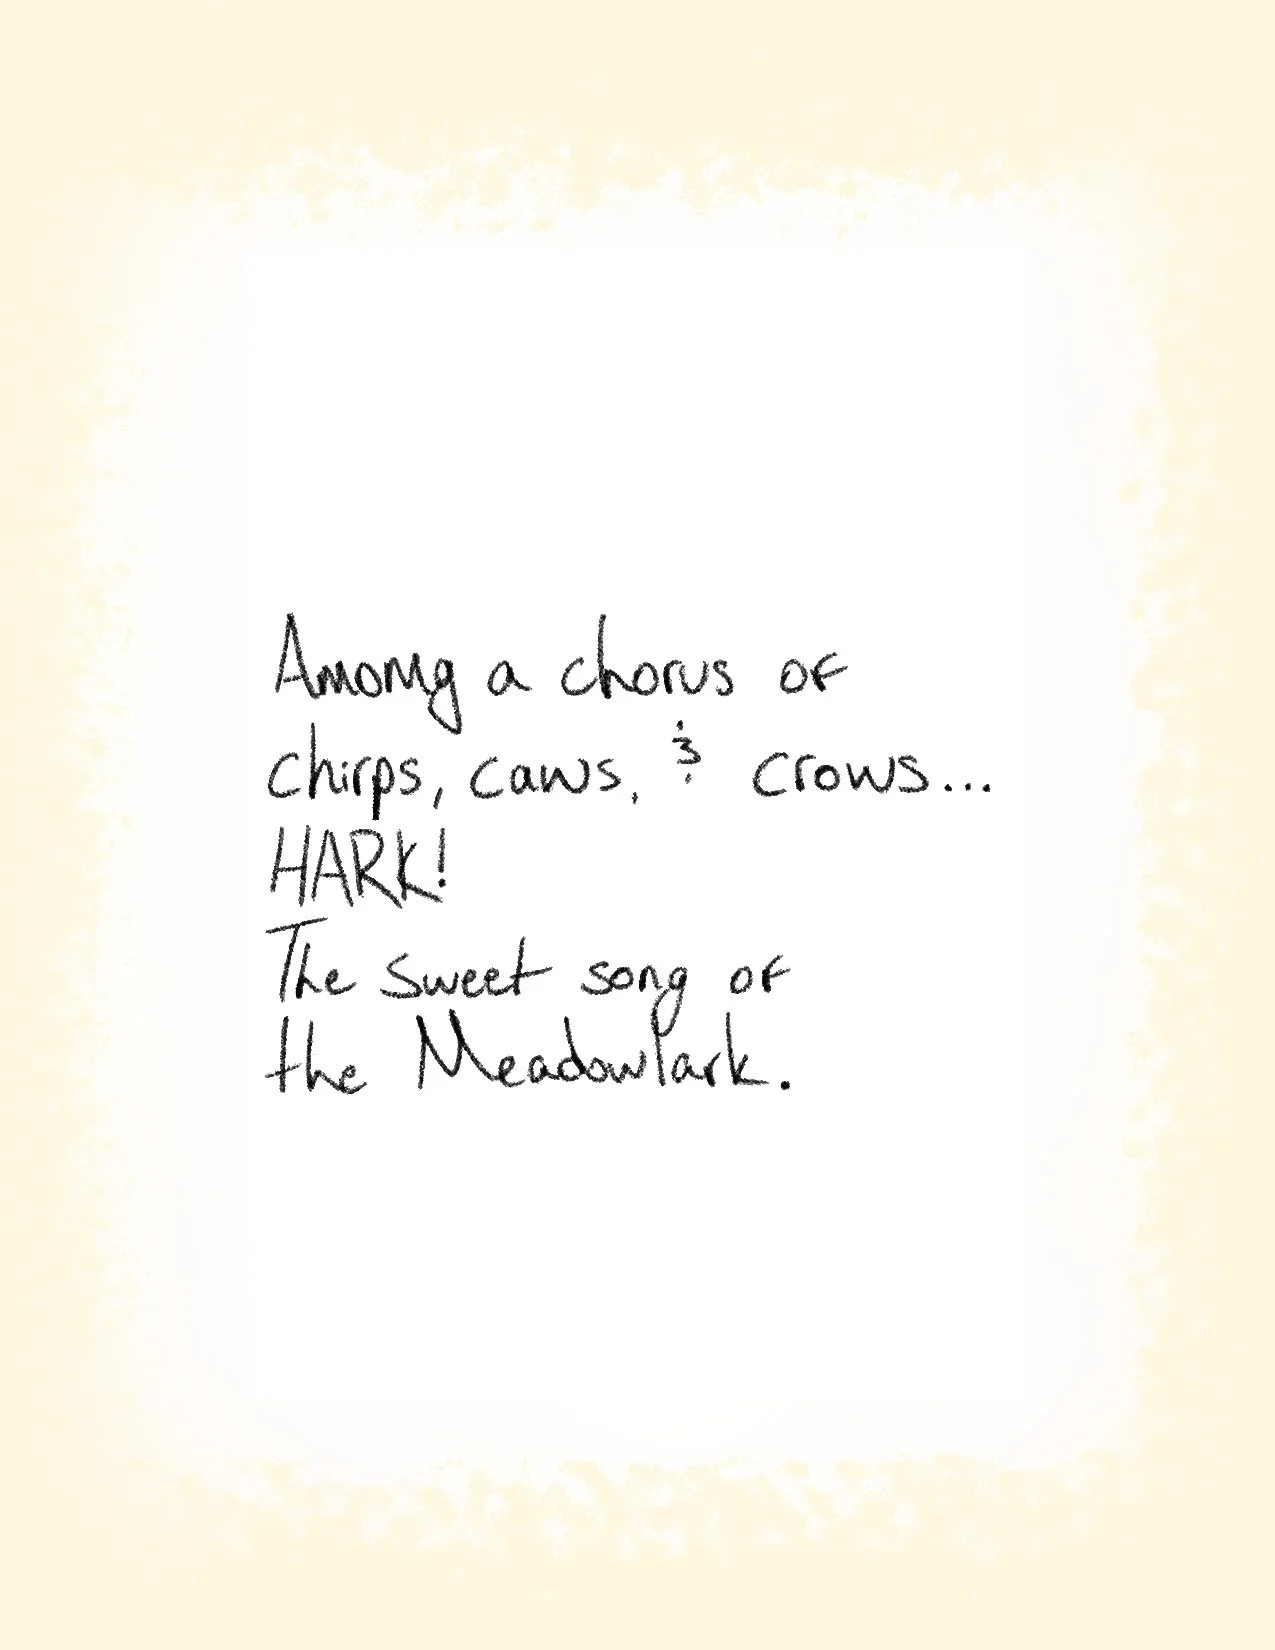 Among a chorus of
chirps, caws, & crows...
HARK!
The sweet song of
the Meadowlark.